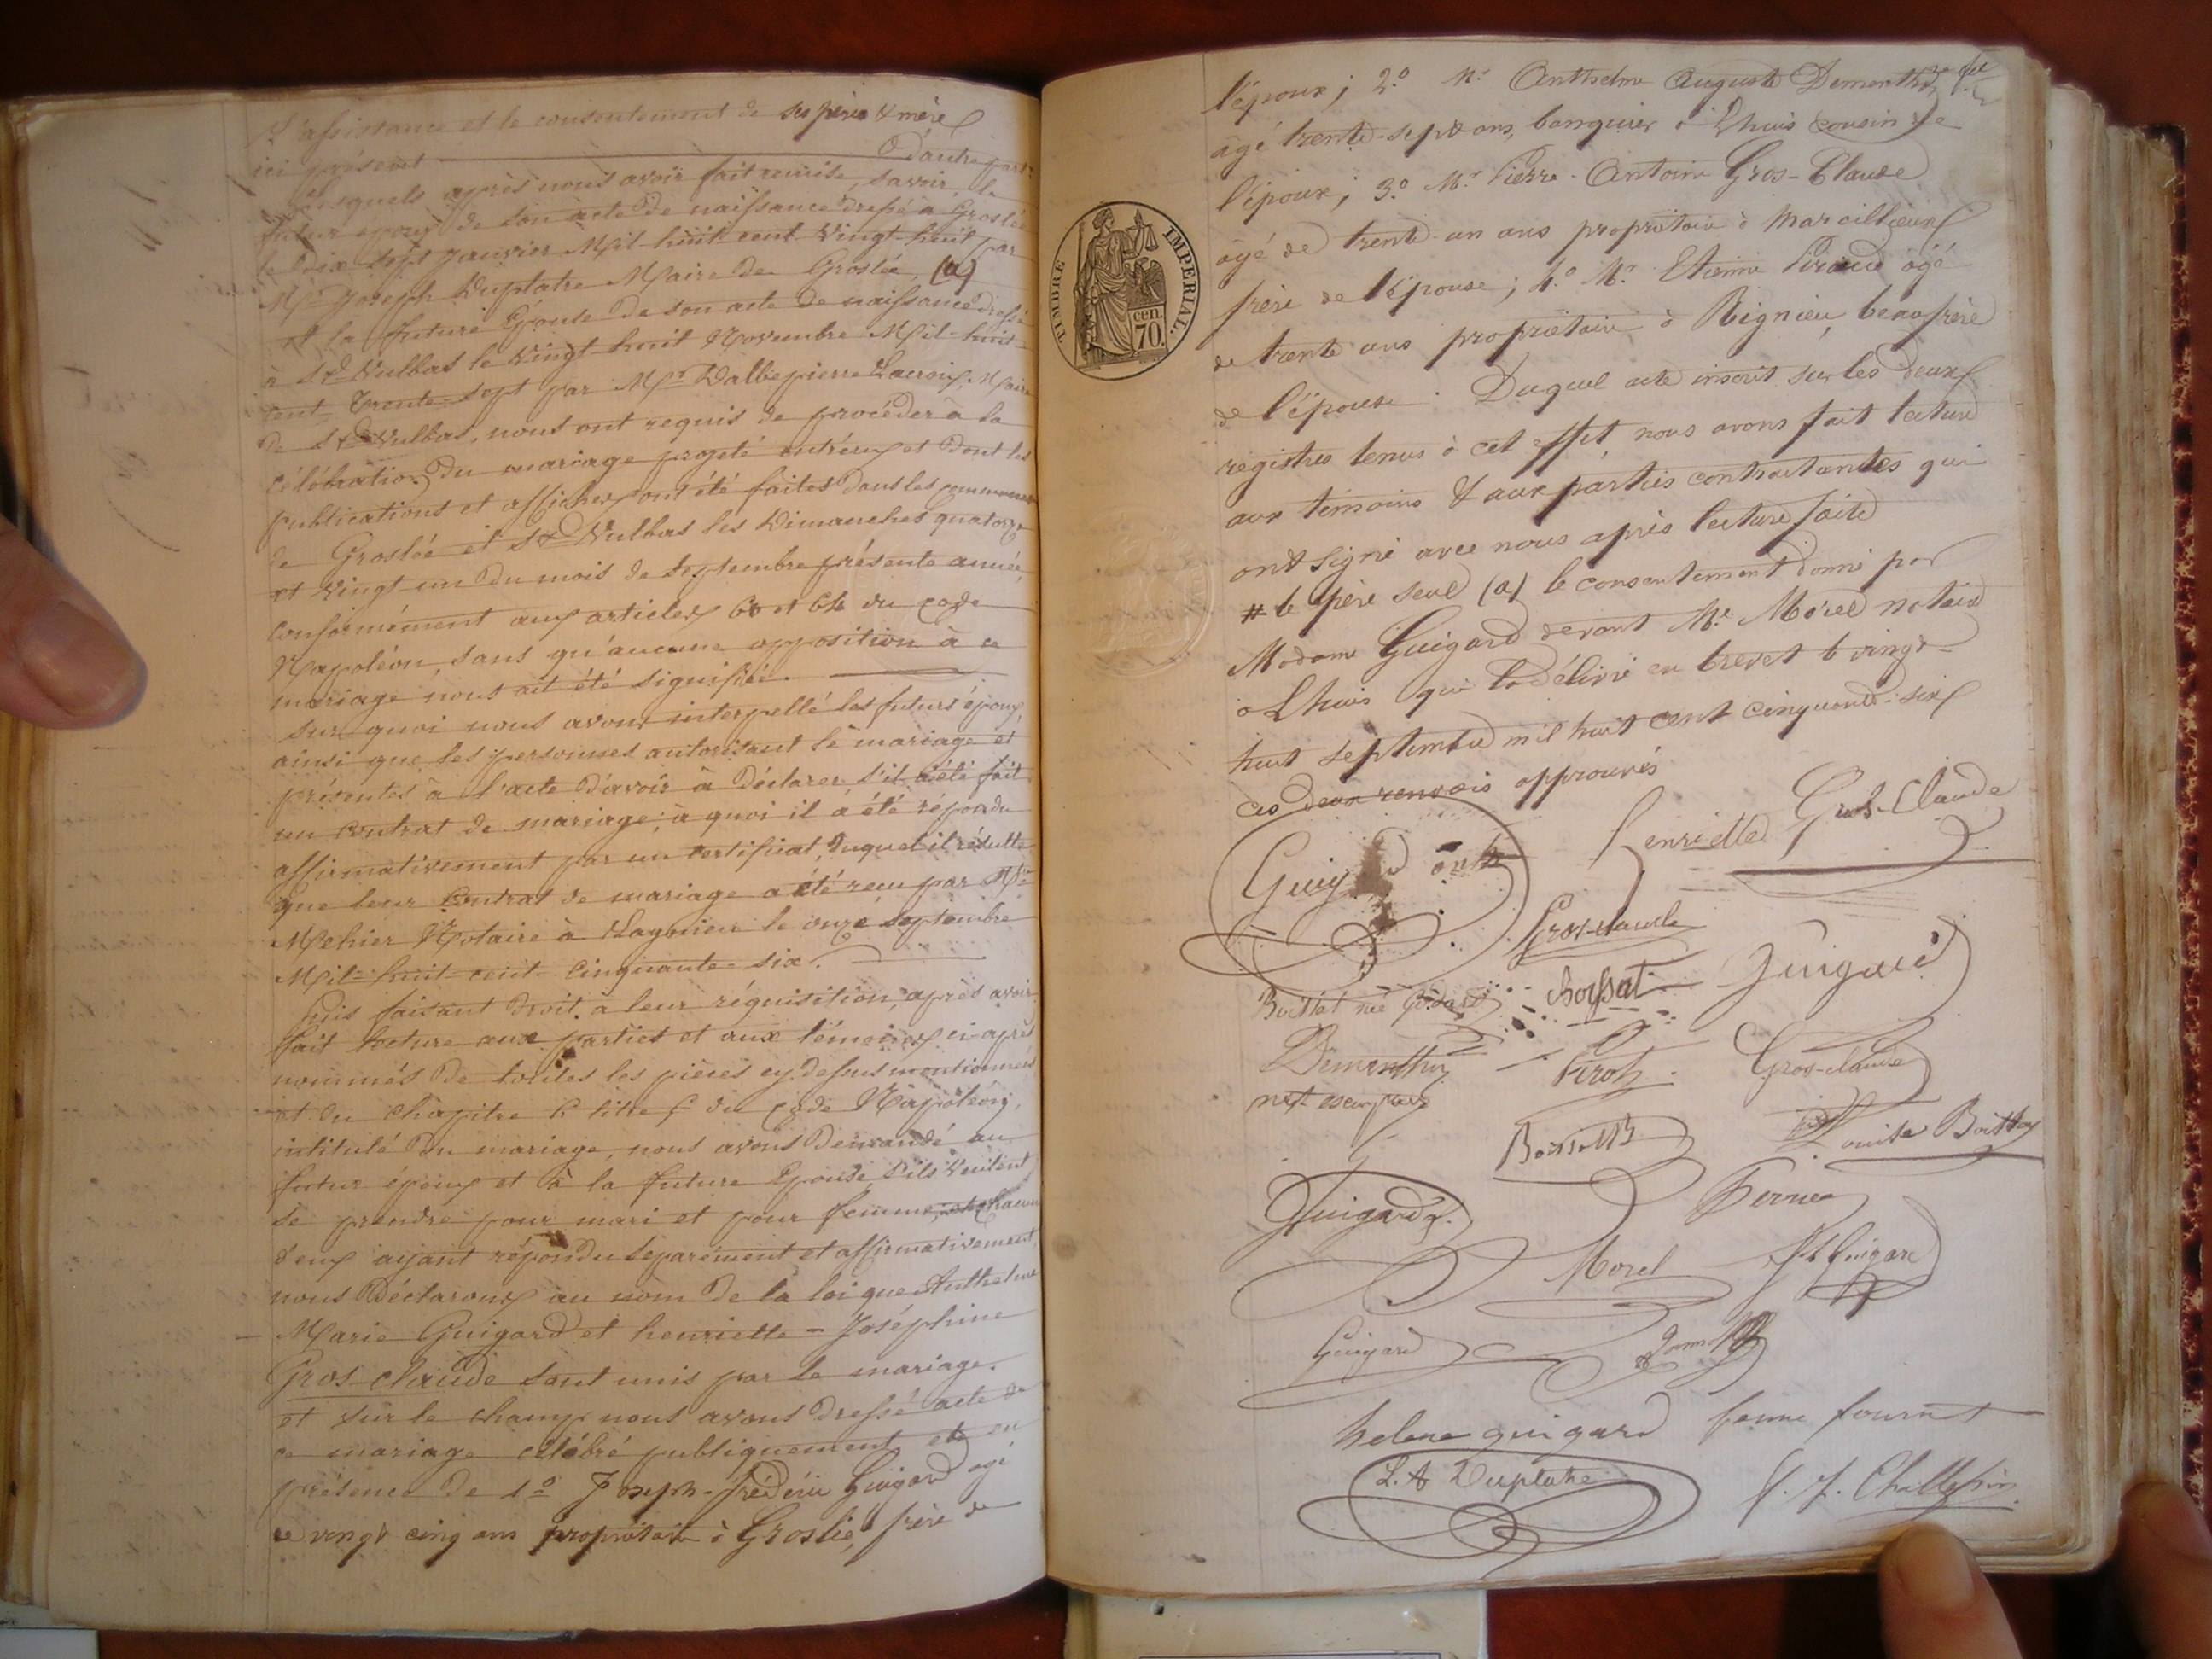 L'assistance et le consentement de ses père & mère
ici présent d'autre part.
Lesquels après nous avoir fait remise, savoir, le
futur époux de son acte de naissance dressé à Groslée
le dix sept Janvier Mil huit cent Vingt-huit par
Mr Joseph Duplatre Maire de Groslée, (a)
et la future Épouse de son acte de naissance dressé
à St Vulbas le vingt huit Novembre Mil-huit
cent Trente-sept par Mr Dalbepierre Lacroix, Maire
de St Vulbas, nous ont requis de procéder à la
célébration du mariage projeté entr'eux et dont les
publications et affiches ont été faites dans les communes
de Groslée et St Vulbas les Dimanches quatorze
et vingt-un du mois de septembre présente année,
conformément aux articles 63 et 64 du code
Napoléon, sans qu'aucune opposition à ce
mariage nous ait été signifiée.
Sur quoi nous avons interpellé les futurs époux,
ainsi que les personnes autorisant le mariage et
présentes à l'acte d'avoir à déclarer s'il a été fait
un contrat de mariage; à quoi il a été répondu
affirmativement par un certificat, duquel il résulte
que leur contrat de mariage a été reçu par Mtre
Mehier Notaire à Lagnieu le onze septembre
Mil-huit-cent-Cinquante-six.
Puis faisant droit à leur réquisition, après avoir
fait lecture aux parties et aux témoins ci-après
nommés de toutes les pièces cy-dessus mentionnées
et du chapitre 6 titre 5 du code Napoléon,
intitulé Du mariage, nous avons demandé au
futur époux et à la future Epouse s'ils veulent
se prendre pour mari et pour femme, et chacun
d'eux ayant répondu séparément et affirmativement,
nous Déclarons au nom de la loi que Anthelme
Marie Guigard et henriette-Joséphine
Gros-claude sont unis par le mariage.
et sur le champ nous avons dressé acte de
ce mariage célébré publiquement et en
présence de 1º Joseph-frédéric Guigard agé
de vingt cinq ans propriétaire à Groslée, frère de
l'époux; 2º Mr Anthelme Auguste Demonthy
agé trente-sept ans, banquier à Lhuis cousin de
l'époux; 3º Mr Pierre-Antoine Gros-Claude
agé de trente-un ans propriétaire à Marcillieux
frère de l'épouse; 4º Mr Etienne Piraud agé
de trente ans propriétaire à Rignieu, beau frère
de l'épouse. Duquel acte inscrit sur les deux
registres tenus à cet effet nous avons fait lecture
aux témoins & aux parties contractantes qui
ont signé avec nous après lecture faite
# le père seul (a) le consentement donné par
Madame Guigard devant Me Morel notaire
à Lhuis qui l'a délivré en brevet le vingt-
huit septembre mil huit cent cinquante-six
ces deux renvois approuvés
TIMBRE IMPERIAL.
70 cen.
Guigard
henriette Gros-Claude
Gros-claude
Boissat
Guigard
Demonthy
Gros-claude
Louise
Guigard
Morel
Guigard
Guigard
helene guigard femme fournet
L. A Duplatre